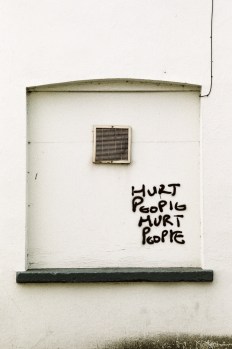 HURT
PEOPLE
HURT
PEOPLE